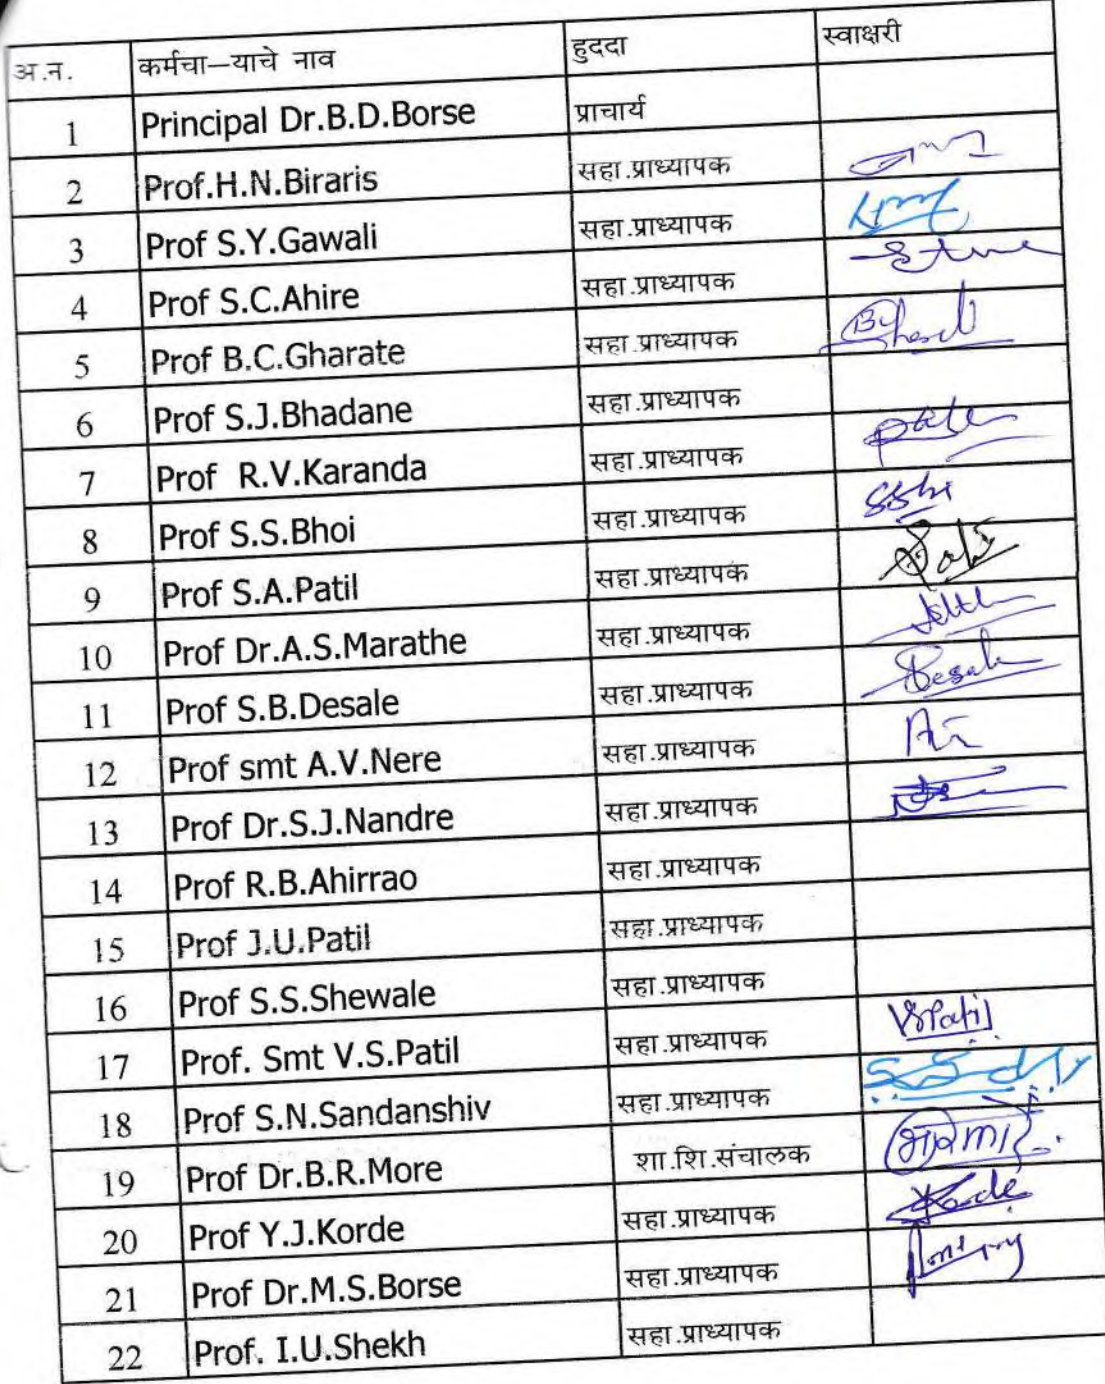 अ.न. कर्मचा–याचे नाव हुददा स्वाक्षरी
1 Principal Dr.B.D.Borse प्राचार्य
2 Prof.H.N.Biraris सहा.प्राध्यापक
3 Prof S.Y.Gawali सहा.प्राध्यापक
4 Prof S.C.Ahire सहा.प्राध्यापक
5 Prof B.C.Gharate सहा.प्राध्यापक
6 Prof S.J.Bhadane सहा.प्राध्यापक
7 Prof R.V.Karanda सहा.प्राध्यापक
8 Prof S.S.Bhoi सहा.प्राध्यापक
9 Prof S.A.Patil सहा.प्राध्यापक
10 Prof Dr.A.S.Marathe सहा.प्राध्यापक
11 Prof S.B.Desale सहा.प्राध्यापक Desale
12 Prof smt A.V.Nere सहा.प्राध्यापक
13 Prof Dr.S.J.Nandre सहा.प्राध्यापक
14 Prof R.B.Ahirrao सहा.प्राध्यापक
15 Prof J.U.Patil सहा.प्राध्यापक
16 Prof S.S.Shewale सहा.प्राध्यापक
17 Prof. Smt V.S.Patil सहा.प्राध्यापक VSPatil
18 Prof S.N.Sandanshiv सहा.प्राध्यापक
19 Prof Dr.B.R.More शा.शि.संचालक
20 Prof Y.J.Korde सहा.प्राध्यापक
21 Prof Dr.M.S.Borse सहा.प्राध्यापक
22 Prof. I.U.Shekh सहा.प्राध्यापक